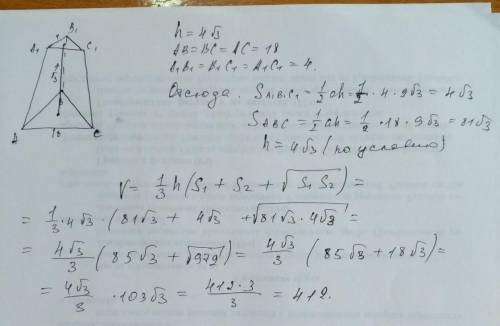 h = 4√3
AB = BC = AC = 18
A₁B₁ = B₁C₁ = A₁C₁ = 4.
Отсюда. S A₁B₁C₁ = 1/2 ah = 1/2 · 4 · 2√3 = 4√3
S ABC = 1/2 ah = 1/2 · 18 · 9√3 = 81√3
h = 4√3 (по условию)
B₁
4
A₁ C₁
A 18 C
V = 1/3 h (S₁ + S₂ + √S₁ S₂) =
= 1/3 · 4√3 · (81√3 + 4√3 + √81√3 · 4√3 =
= 4√3/3 (85√3 + √972) = 4√3/3 (85√3 + 18√3) =
= 4√3/3 · 103√3 = 412·3/3 = 412.